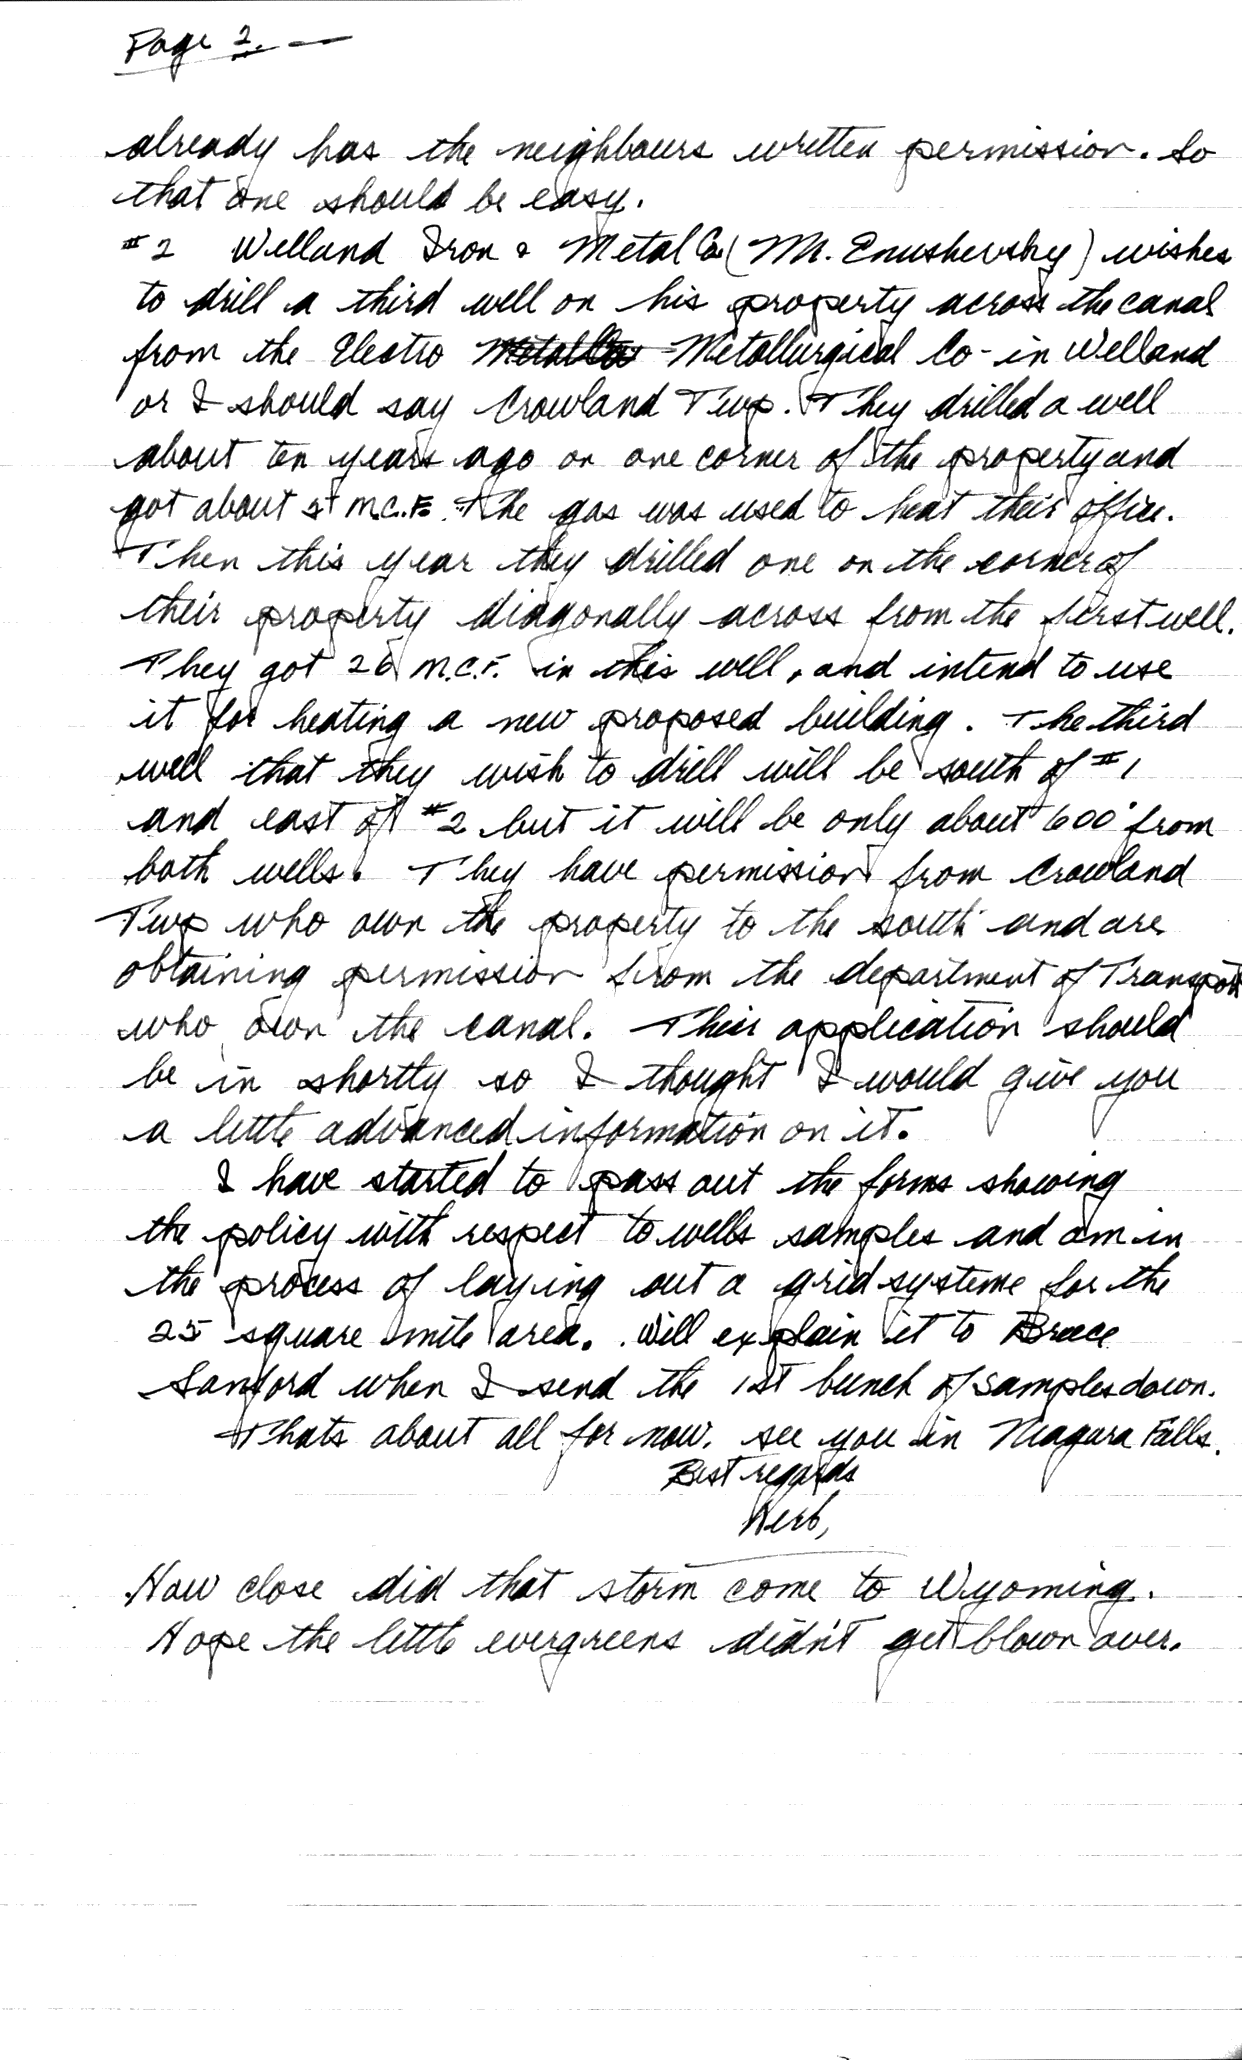 Page 2. —
already has the neighbours written permission. So
that one should be easy.
#2 Welland Iron & Metal Co (Mr. Enushevsky) wishes
to drill a third well on his property across the canal
from the Electro Metallurgical Co - in Welland
or I should say Crowland Twp. They drilled a well
about ten years ago on one corner of the property and
got about M.C.F. The gas was used to heat their office.
Then this year they drilled one on the corner of
their property diagonally across from the first well.
They got 26 M.C.F. in this well, and intend to use
it for heating a new proposed building. The third
well that they wish to drill will be south of #1
and east of #2 but it will be only about 600' from
both wells. They have permission from Crowland
Twp who own the property to the south and are
obtaining permission from the department of Transport
who own the canal. Their application should
be in shortly so I thought I would give you
a little advanced information on it.
I have started to pass out the forms showing
the policy with respect to wells samples and am in
the process of laying out a grid systeme for the
25 square mile area. Will explain it to Bruce
Sanford when I send the 1st bunch of samples down.
Thats about all for now. see you in Niagara Falls.
Best regards
Herb,
How close did that storm come to Wyoming.
Hope the little evergreens didn't get blown over.